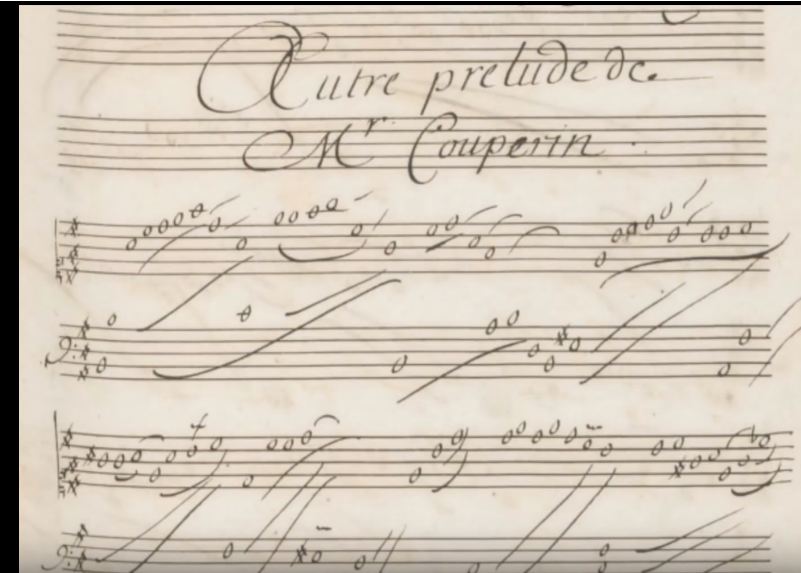 Autre prelude de.
Mr. Couperin.